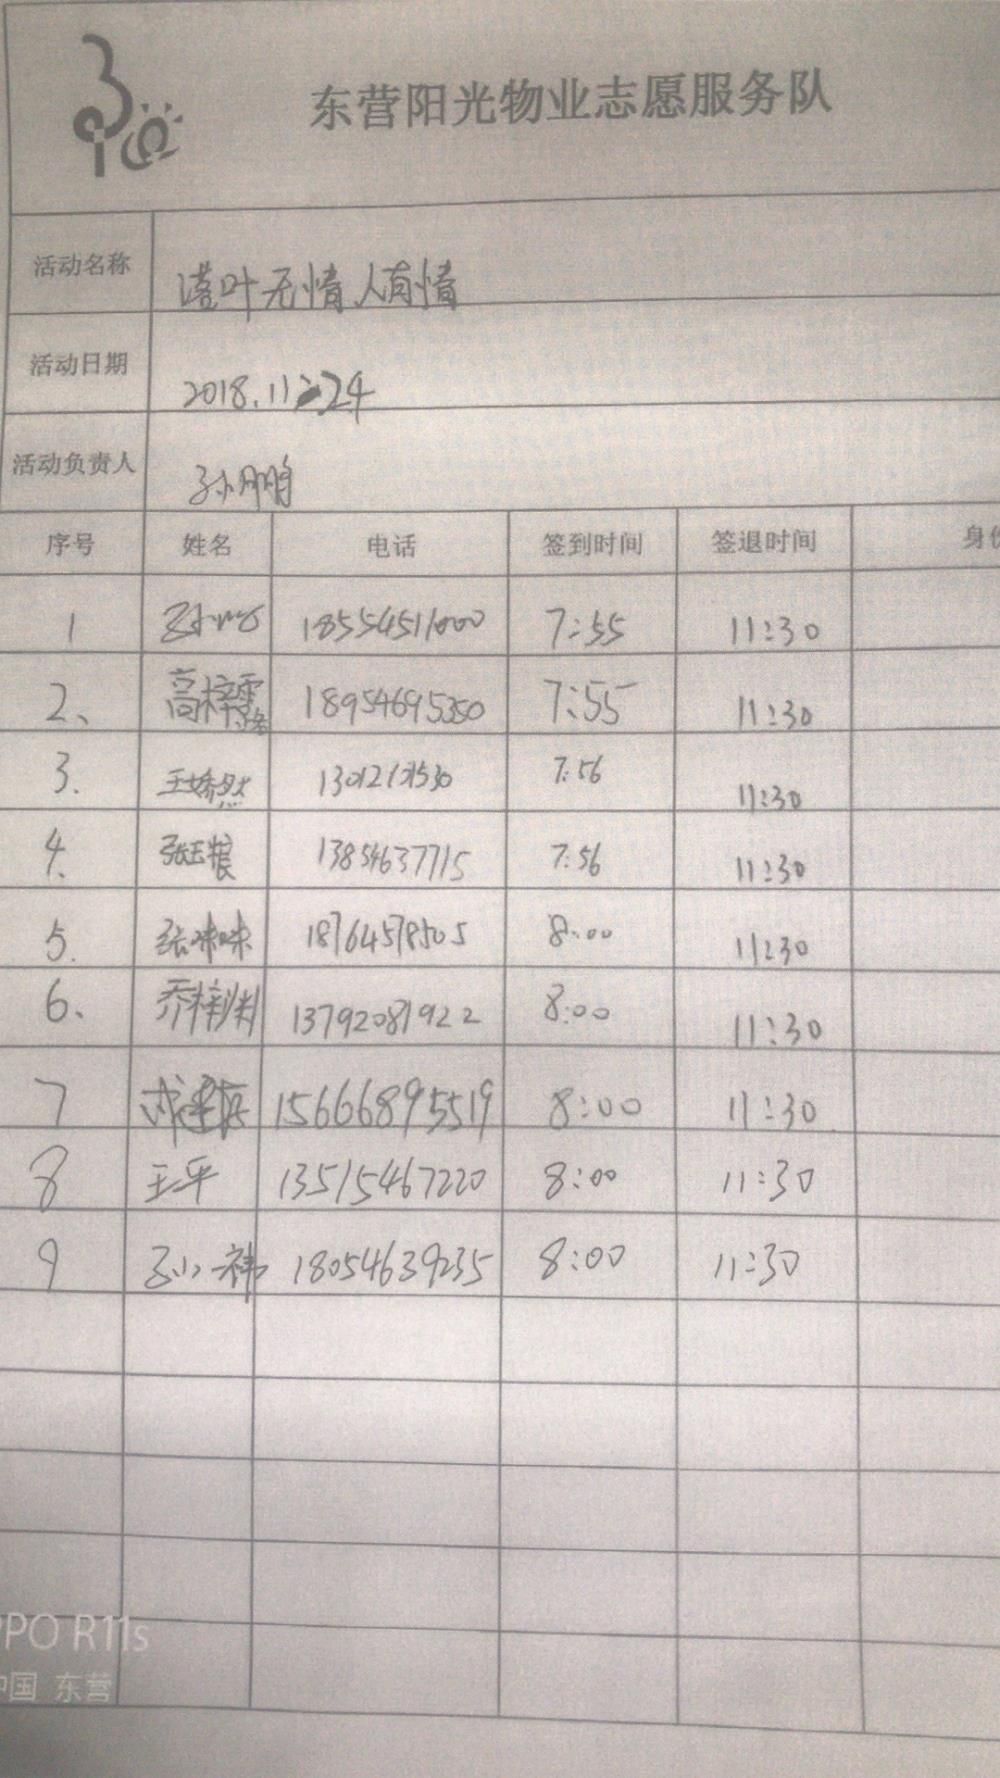 东营阳光物业志愿服务队
活动名称 落叶无情人有情
活动日期 2018.11.24
活动负责人 孙鹏
序号 姓名 电话 签到时间 签退时间
1 18554511000 7:55 11:30
2、 高梓 18954695350 7:55 11:30
3. 王娇然 7:56 11:30
4. 张 13854637715 7:56 11:30
5. 张咪咪 18764578505 8:00 11:30
6、 乔梓 13792081922 8:00 11:30
7 15666895519 8:00 11:30
8 王平 13515467220 8:00 11:30
9 孙一祎 18054639235 8:00 11:30
PPO R11s
中国 东营